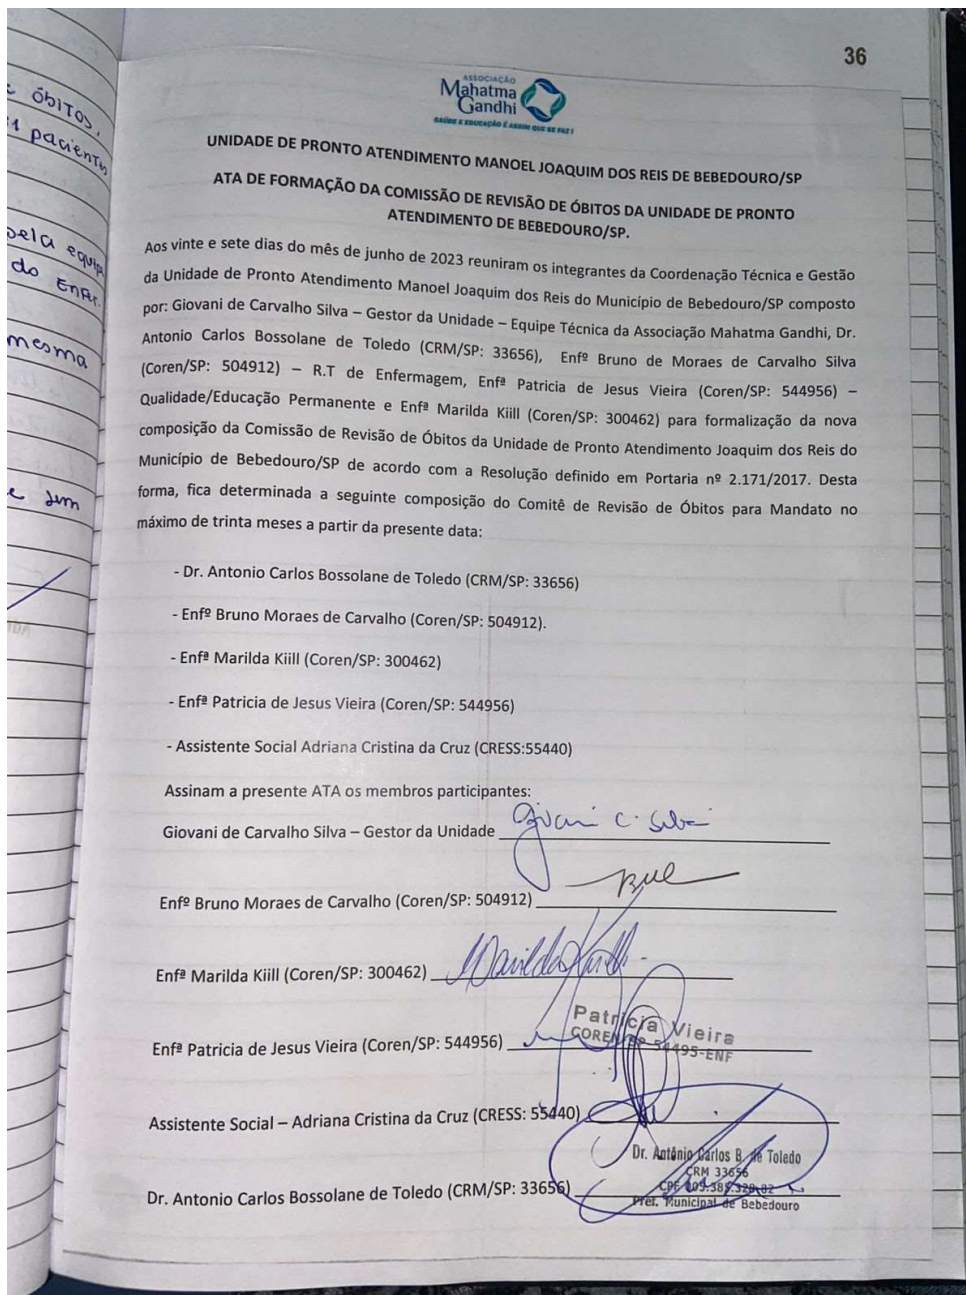 36
óbitos,
pacientes
pela equipe
do Enfr.
mesma
e sem
ASSOCIAÇÃO
Mahatma
Gandhi
SAÚDE E EDUCAÇÃO É ASSIM QUE SE FAZ!
UNIDADE DE PRONTO ATENDIMENTO MANOEL JOAQUIM DOS REIS DE BEBEDOURO/SP
ATA DE FORMAÇÃO DA COMISSÃO DE REVISÃO DE ÓBITOS DA UNIDADE DE PRONTO
ATENDIMENTO DE BEBEDOURO/SP.
Aos vinte e sete dias do mês de junho de 2023 reuniram os integrantes da Coordenação Técnica e Gestão
da Unidade de Pronto Atendimento Manoel Joaquim dos Reis do Município de Bebedouro/SP composto
por: Giovani de Carvalho Silva – Gestor da Unidade – Equipe Técnica da Associação Mahatma Gandhi, Dr.
Antonio Carlos Bossolane de Toledo (CRM/SP: 33656), Enfº Bruno de Moraes de Carvalho Silva
(Coren/SP: 504912) – R.T de Enfermagem, Enfª Patricia de Jesus Vieira (Coren/SP: 544956) –
Qualidade/Educação Permanente e Enfª Marilda Kiill (Coren/SP: 300462) para formalização da nova
composição da Comissão de Revisão de Óbitos da Unidade de Pronto Atendimento Joaquim dos Reis do
Município de Bebedouro/SP de acordo com a Resolução definido em Portaria nº 2.171/2017. Desta
forma, fica determinada a seguinte composição do Comitê de Revisão de Óbitos para Mandato no
máximo de trinta meses a partir da presente data:
- Dr. Antonio Carlos Bossolane de Toledo (CRM/SP: 33656)
- Enfº Bruno Moraes de Carvalho (Coren/SP: 504912).
- Enfª Marilda Kiill (Coren/SP: 300462)
- Enfª Patricia de Jesus Vieira (Coren/SP: 544956)
- Assistente Social Adriana Cristina da Cruz (CRESS:55440)
Assinam a presente ATA os membros participantes:
Giovani de Carvalho Silva – Gestor da Unidade Giovani C. Silva
Enfº Bruno Moraes de Carvalho (Coren/SP: 504912)
Enfª Marilda Kiill (Coren/SP: 300462) Marilda Kiill
Patricia Vieira
COREN 54495-ENF
Enfª Patricia de Jesus Vieira (Coren/SP: 544956)
Assistente Social – Adriana Cristina da Cruz (CRESS: 55440)
Dr. Antônio Carlos B. de Toledo
CRM 33656
CPF
Pref. Municipal de Bebedouro
Dr. Antonio Carlos Bossolane de Toledo (CRM/SP: 33656)